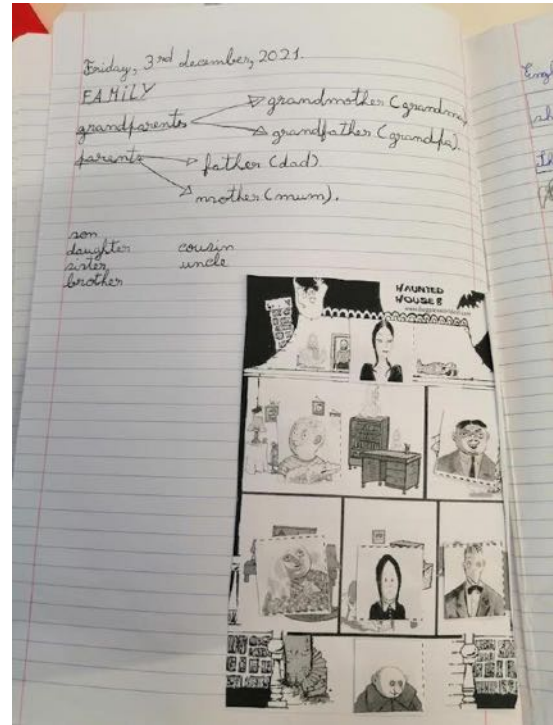 Friday, 3rd december, 2021.
FAMILY
grandparents
grandmother (grandma
grandfather (grandpa).
parents
father (dad).
mother (mum).
son
daughter cousin
sister uncle
brother
HAUNTED
HOUSE 8